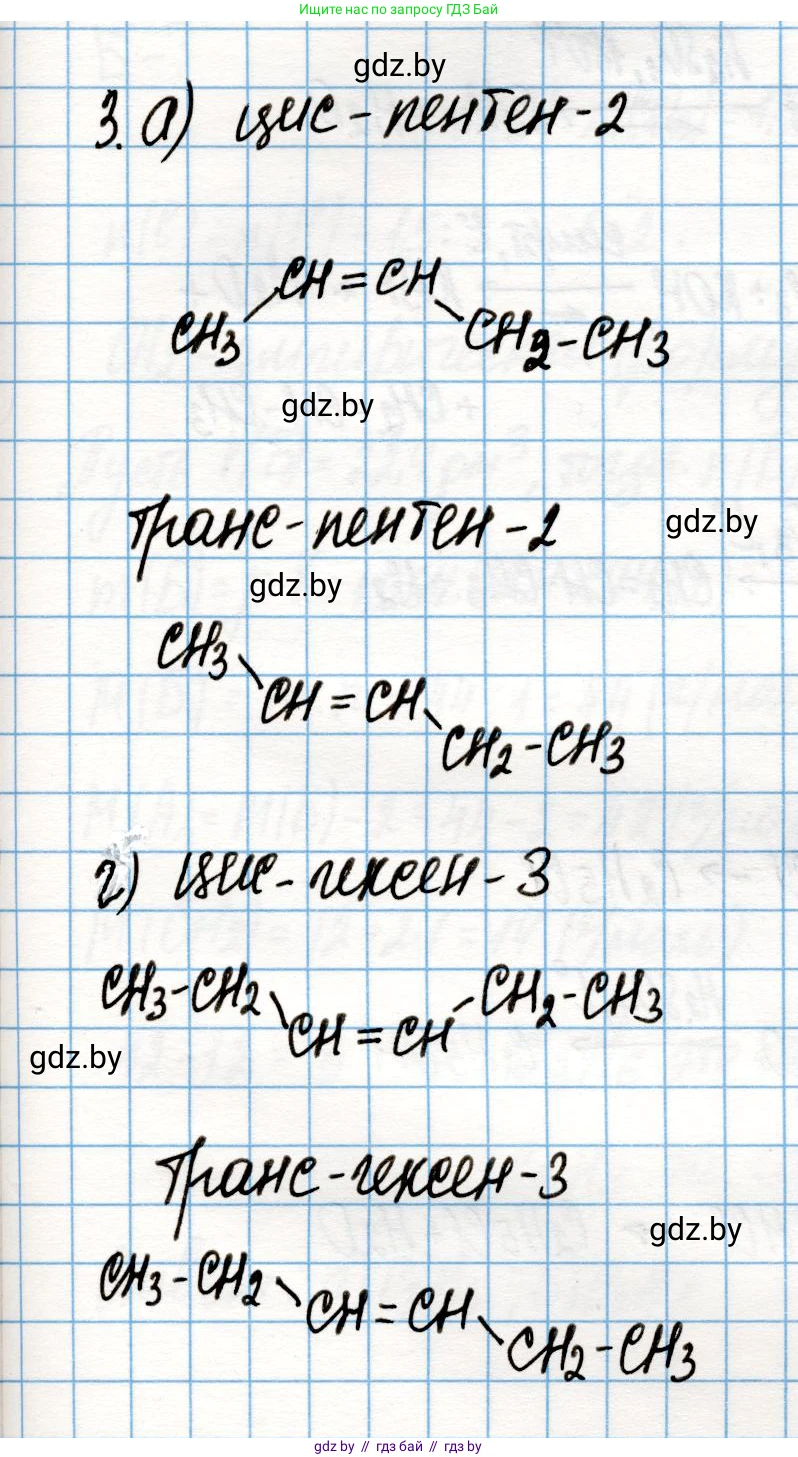 Ищите нас по запросу ГДЗ Бай
gdz.by
3. а) цис - пентен - 2
CH = CH
CH3 CH2 - CH3
gdz.by
Транс - пентен - 2
gdz.by
gdz.by
CH3
CH = CH
CH2 - CH3
г) цис - гексен - 3
CH3 - CH2 CH2 - CH3
CH = CH
gdz.by
Транс - гексен - 3
gdz.by
CH3 - CH2
CH = CH
CH2 - CH3
gdz.by // гдз бай // гдз by